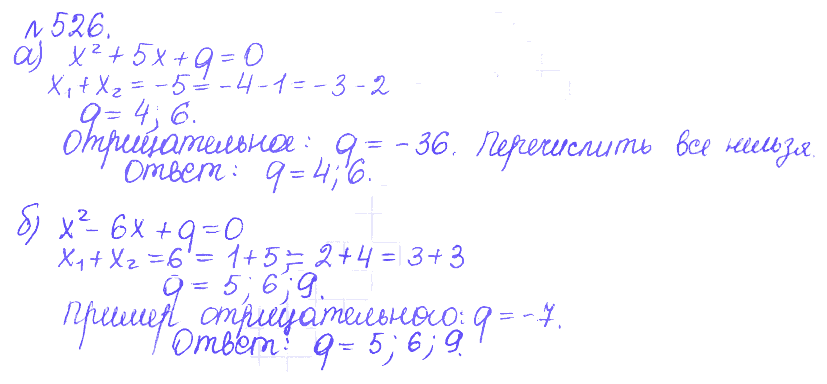 № 526.
а) x² + 5x + q = 0
x₁ + x₂ = -5 = -4 - 1 = -3 - 2
q = 4; 6.
Отрицательное: q = -36. Перечислить все нельзя.
Ответ: q = 4; 6.
б) x² - 6x + q = 0
x₁ + x₂ = 6 = 1 + 5 = 2 + 4 = 3 + 3
q = 5; 6; 9.
Пример отрицательного: q = -7.
Ответ: q = 5; 6; 9.